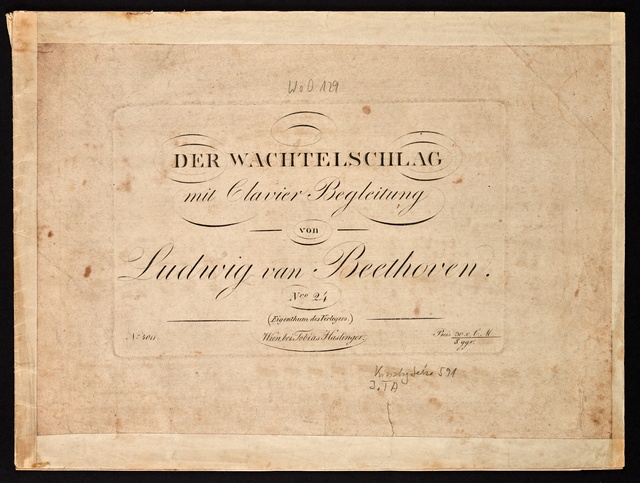 WoO 129
DER WACHTELSCHLAG
mit Clavier Begleitung
von
Ludwig van Beethoven.
Nro 24
(Eigenthum des Verlegers.)
Wien, bei Tobias Haslinger.
Preis 20 x. C. M.
5 ggr.
591